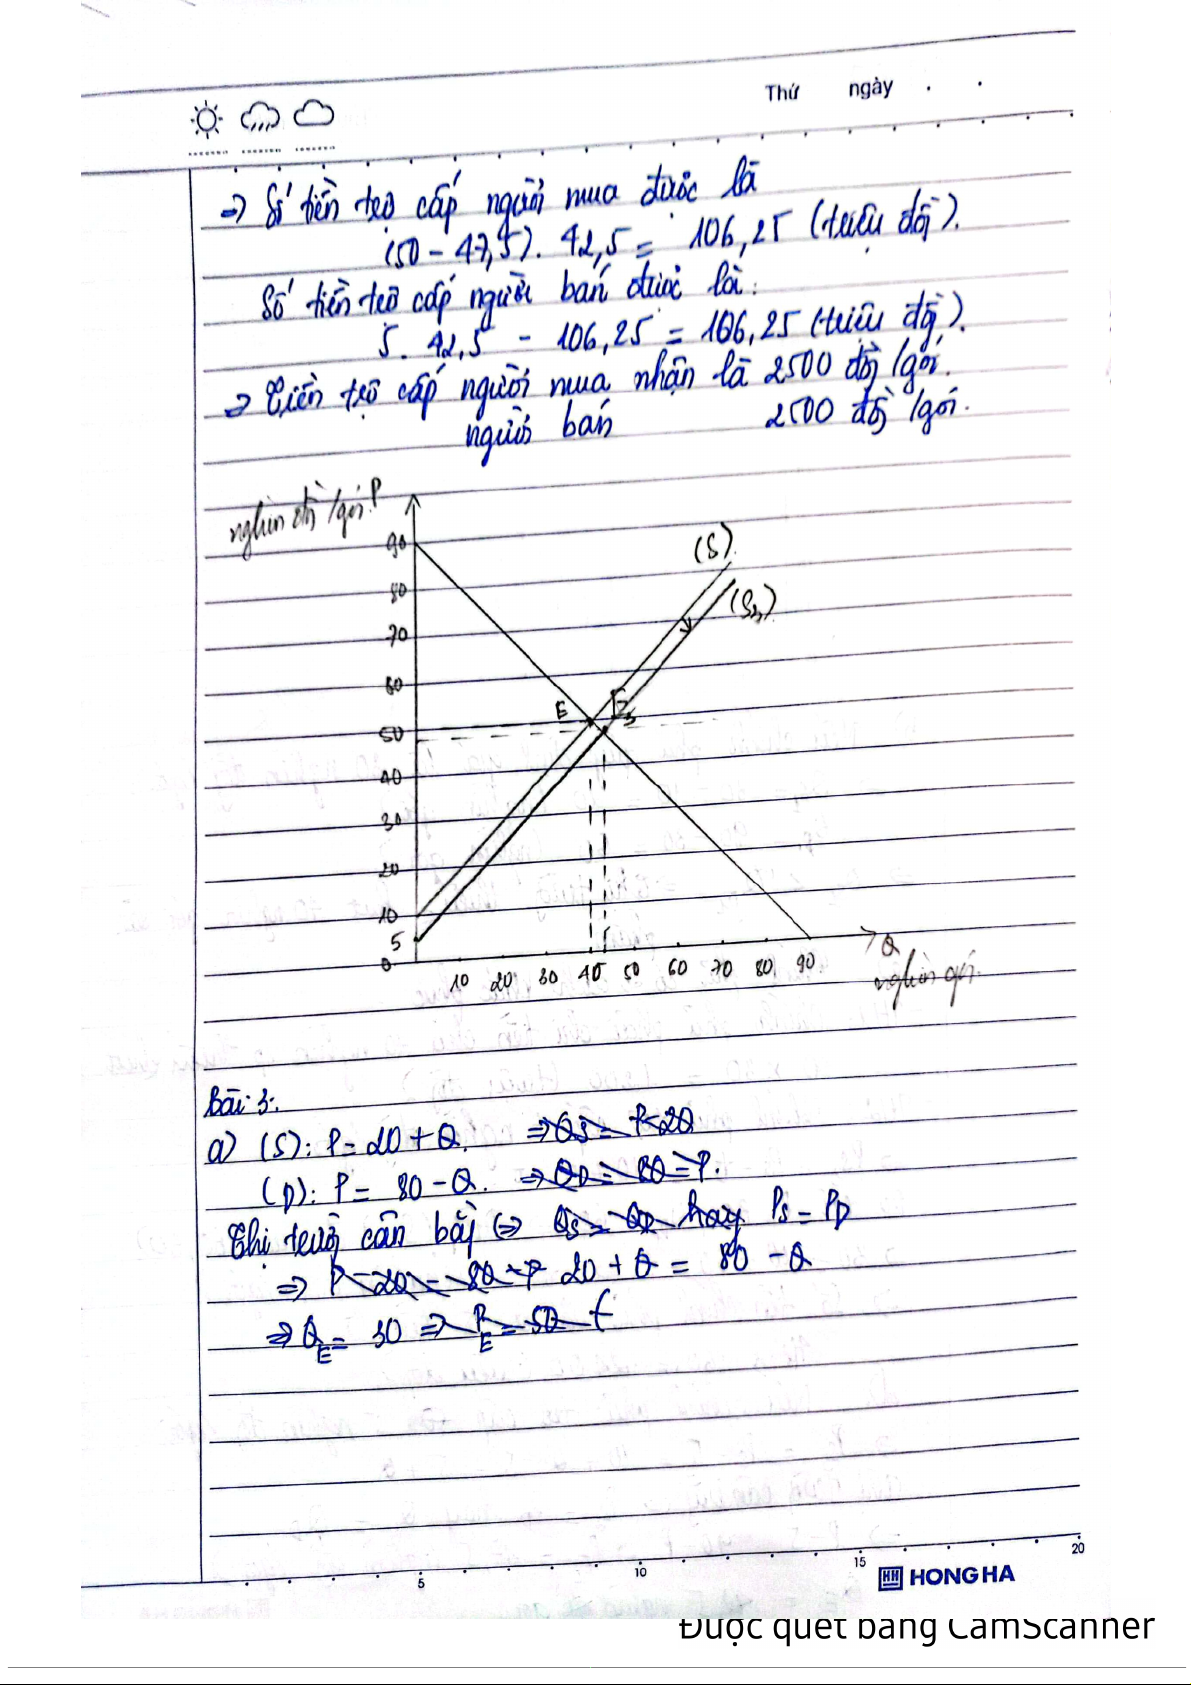 Thứ ngày . .
=> Số tiền trợ cấp người mua được là
(50 - 47,5). 42,5 = 106,25 (triệu đồng).
Số tiền trợ cấp người bán được là:
5. 42,5 - 106,25 = 106,25 (triệu đồng).
=> Tiền trợ cấp người mua nhận là 2500 đồng/gói.
người bán 2500 đồng/gói.
nghìn đồng/gói P
90
(S)
80
(S3)
70
60
E E3
50
40
30
20
10
5
0
10 20 30 40 50 60 70 80 90 Q
nghìn gói
Bài 3:
a) (S): P = 20 + Q. => QS = P-20
(D): P = 80 - Q. => QD = 80 - P.
Thị trường cân bằng <=> QS = QD hay PS = PD
=> P - 20 = 80 - P 20 + Q = 80 - Q
=> QE = 30 => PE = 50
5 10 15 20
HONG HA
Được quét bằng CamScanner